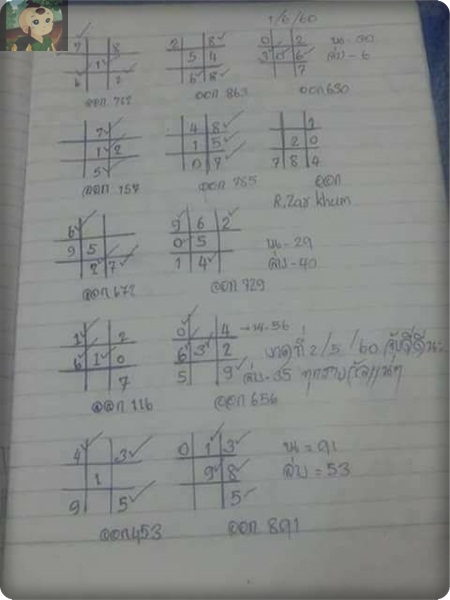 1/6/60
7 8
1
6 2
ออก 762
2 8
5 4
6 8
ออก 863
0 2
3 0 6
7
ออก 630
บน-30
ล่าง-6
7
1 2
5
ออก 157
4 8
1 5
0 7
ออก 785
1
2 0
7 8 4
ออก
R.Zar khum
6
9 5
2 7
ออก 672
9 6 2
0 5
1 4
ออก 929
บน-29
ล่าง-40
1 2
6 1 0
7
ออก 116
0 4
6 3 2
5 9
ออก 656
→บน.56
ล่าง-35
งวดที่ 2/5/60
4 3
1
9 5
ออก 453
0 1 3
9 8
5
ออก 891
บน = 91
ล่าง = 53